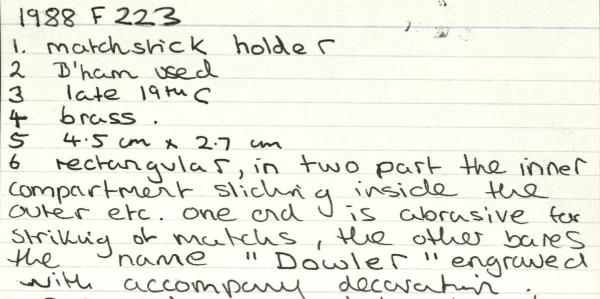 1988 F 223
1. matchstick holder
2 B'ham used
3 late 19th C
4 brass.
5 4.5 cm x 2.7 cm
6 rectangular, in two part the inner
compartment sliding inside the
outer etc. one end is abrasive for
striking of matchs, the other bares
the name "Dowler" engraved
with accompany decoration.